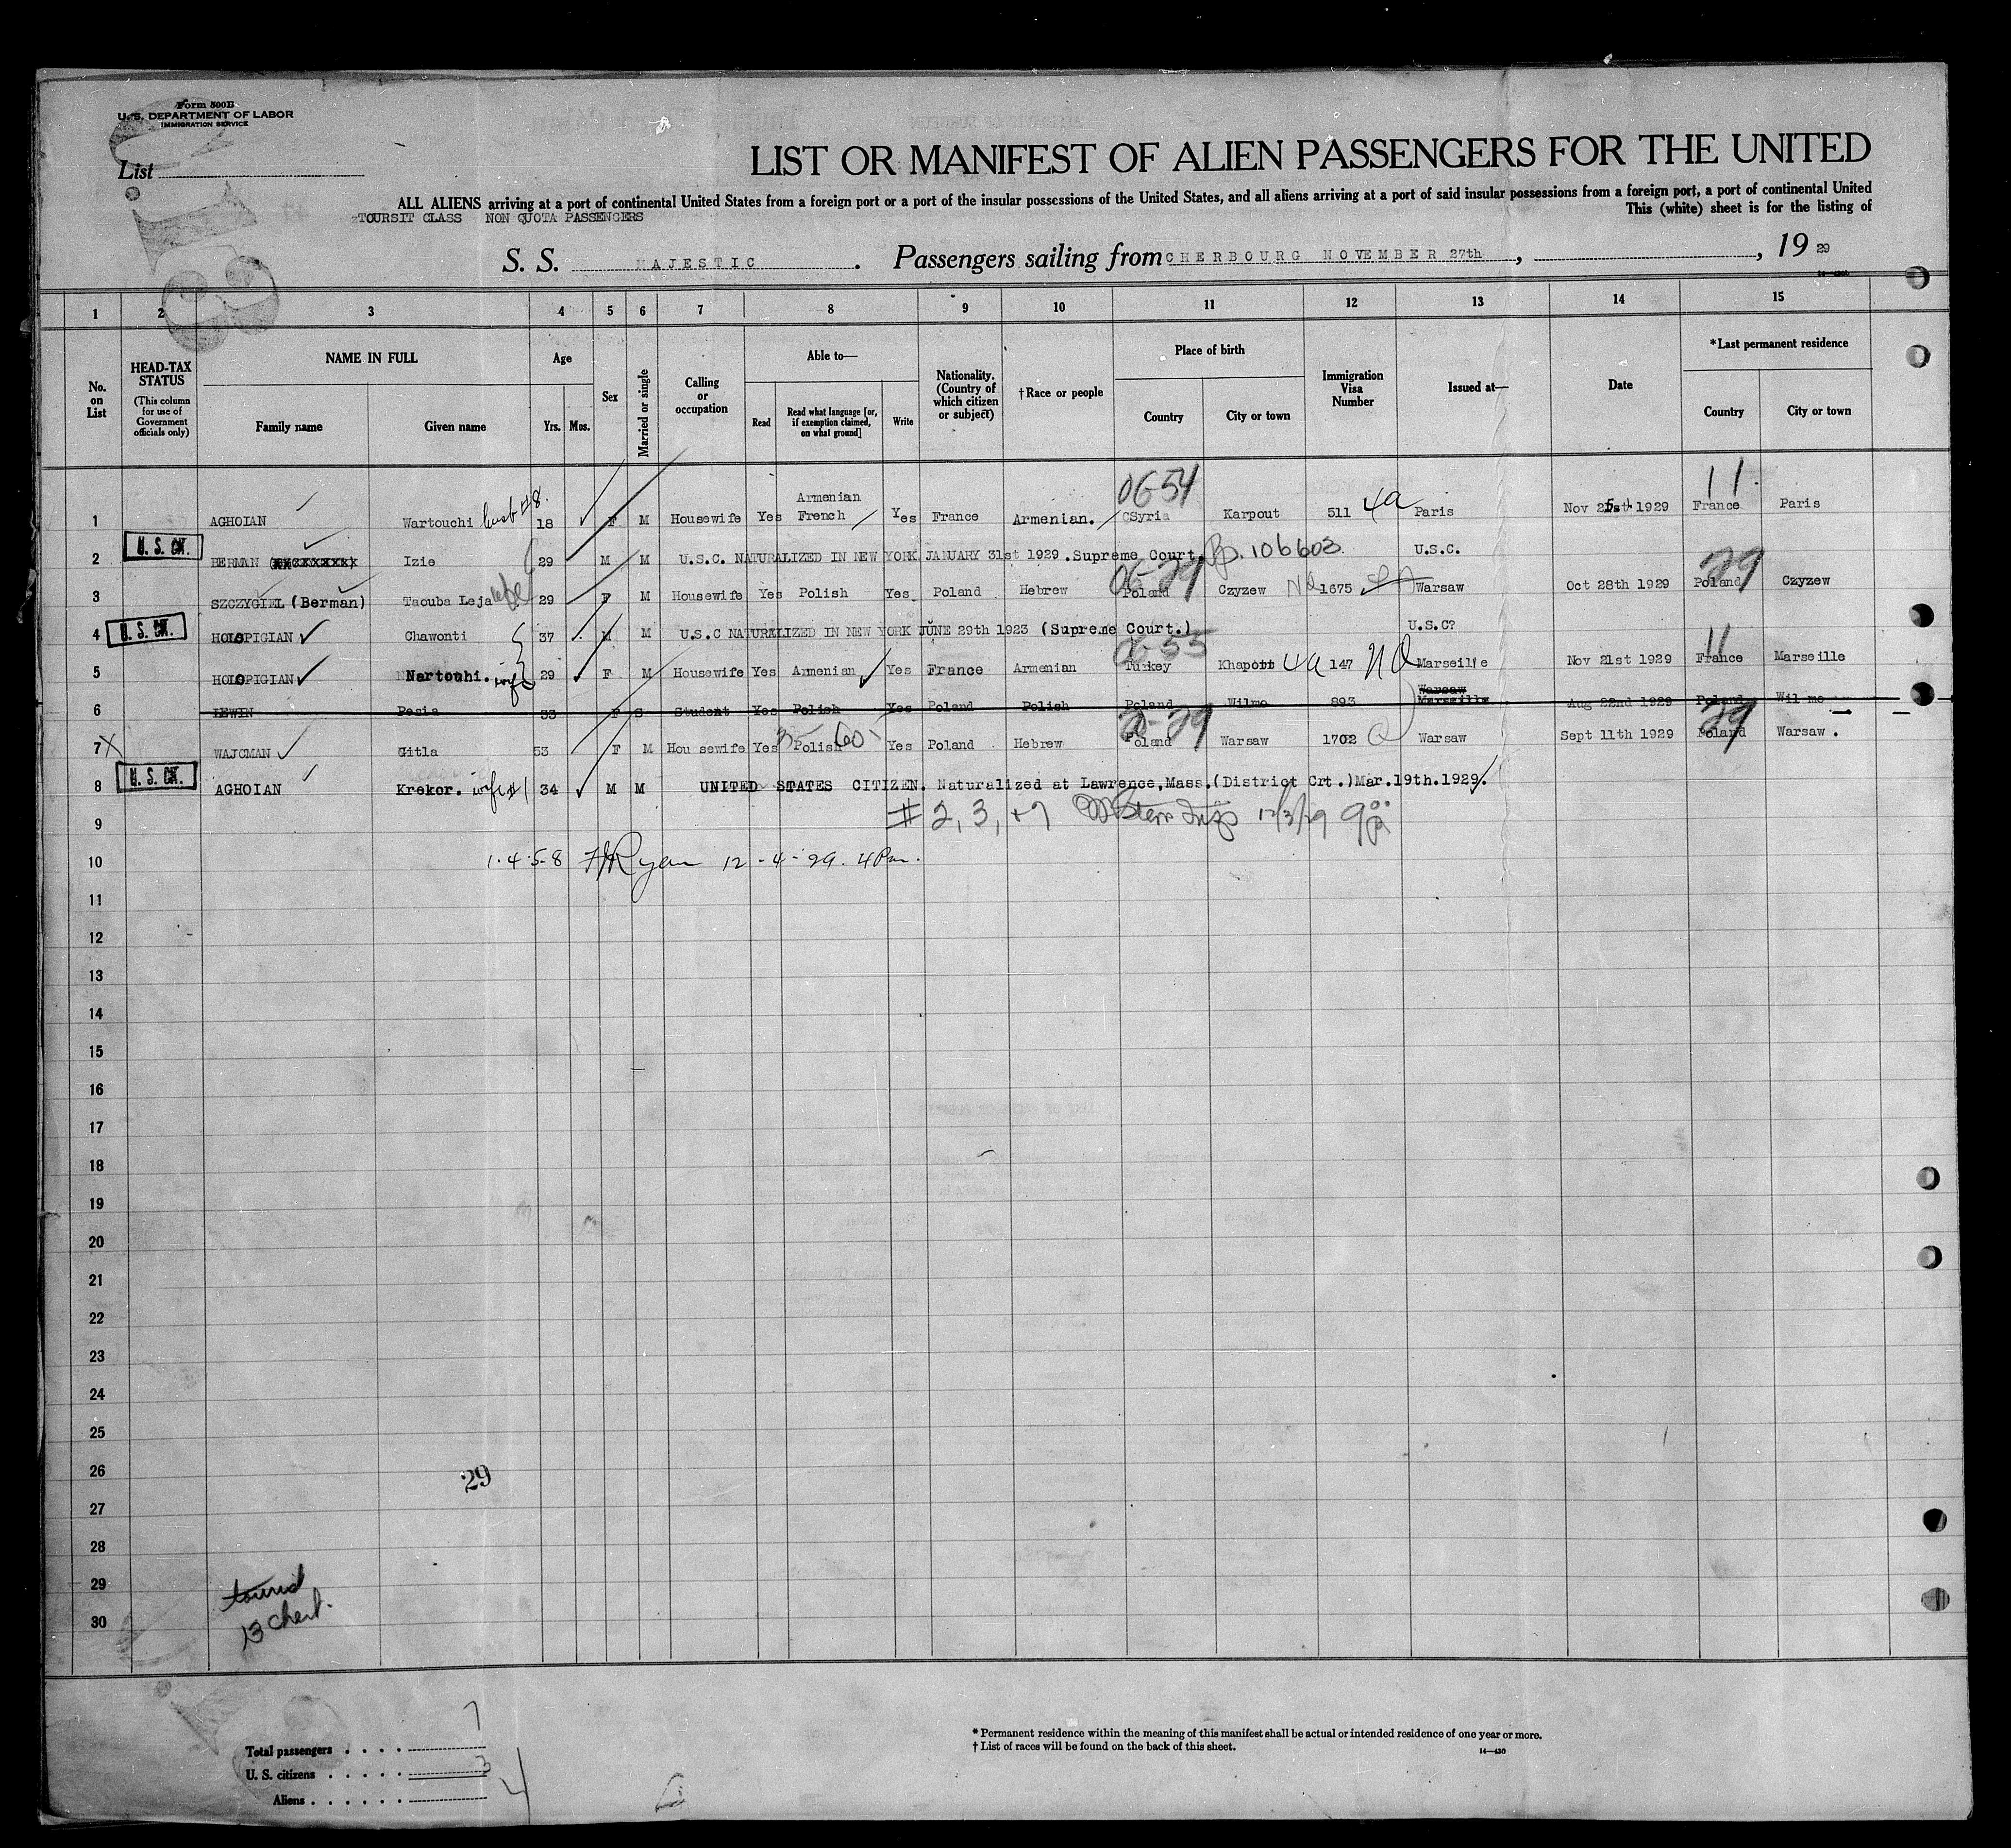 Form 500B
U. S. DEPARTMENT OF LABOR
IMMIGRATION SERVICE
List
LIST OR MANIFEST OF ALIEN PASSENGERS FOR THE UNITED
ALL ALIENS arriving at a port of continental United States from a foreign port or a port of the insular possessions of the United States, and all aliens arriving at a port of said insular possessions from a foreign port, a port of continental United
TOURSIT CLASS NON QUOTA PASSENGERS
This (white) sheet is for the listing of
S. S. MAJESTIC . Passengers sailing from CHERBOURG NOVEMBER 27th , , 19 29
1 2 3 4 5 6 7 8 9 10 11 12 13 14 15
No. on List
HEAD-TAX STATUS (This column for use of Government officials only)
NAME IN FULL
Family name
Given name
Age
Yrs. Mos.
Sex
Married or single
Calling or occupation
Able to—
Read
Read what language [or, if exemption claimed, on what ground]
Write
Nationality. (Country of which citizen or subject)
† Race or people
Place of birth
Country
City or town
Immigration Visa Number
Issued at—
Date
*Last permanent residence
Country
City or town
06-54 11
1 AGHOIAN Wartouchi husb #8. 18 F M Housewife Yes Armenian French Yes France Armenian. Syria Karpout 511 4a Paris Nov 1929 France Paris
U. S. CIT.
2 BERMAN Izie 29 M M U.S.C. NATURALIZED IN NEW YORK JANUARY 31st 1929.Supreme Court. 106603 U.S.C.
06-29 29
3 SZCZYGIEL (Berman) Taouba Leja wife 29 F M Housewife Yes Polish Yes Poland Hebrew Poland Czyzew NQ 1675 Warsaw Oct 28th 1929 Poland Czyzew
U. S. CIT.
4 HOLOPIGIAN Chawonti 37 M M U.S.C NATURALIZED IN NEW YORK JUNE 29th 1923 (Supreme Court.) U.S.C?
06-55 11
5 HOLOPIGIAN Nartouhi. wife 29 F M Housewife Yes Armenian Yes France Armenian Turkey Khapott 4a 147 NQ Marseille Nov 21st 1929 France Marseille
6 LEWIN Pesia 33 F S Student Yes Polish Yes Poland Polish Poland Wilno 893 Warsaw Marseille Aug 22nd 1929 Poland Wilno
29 29
7 X WAJCMAN Gitla 53 F M Housewife Yes Polish Yes Poland Hebrew Poland Warsaw 1702 Q Warsaw Sept 11th 1929 Poland Warsaw.
U. S. CIT.
8 AGHOIAN Krekor. wife #1 34 M M UNITED STATES CITIZEN. Naturalized at Lawrence,Mass.(District Crt.)Mar.19th.1929.
9 # 2, 3, + 7 12/3/29
10 1.4.5-8 Ryan 12-4-29. 4Pm.
11
12
13
14
15
16
17
18
19
20
21
22
23
24
25
26
29
27
28
29
30
13 Cherb.
Total passengers . . . . 7
U. S. citizens . . . . . 3
Aliens . . . . . . 4
* Permanent residence within the meaning of this manifest shall be actual or intended residence of one year or more.
† List of races will be found on the back of this sheet.
14—430